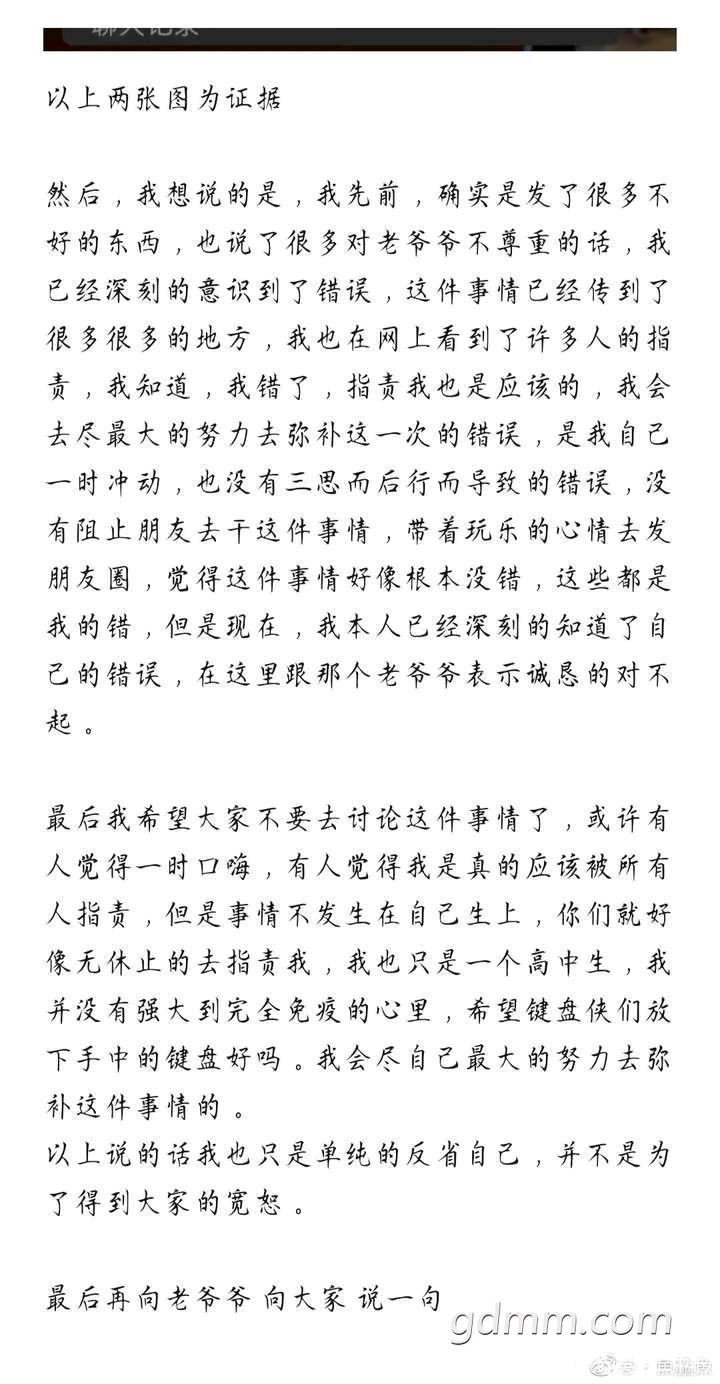 聊天记录
以上两张图为证据
然后，我想说的是，我先前，确实是发了很多不
好的东西，也说了很多对老爷爷不尊重的话，我
已经深刻的意识到了错误，这件事情已经传到了
很多很多的地方，我也在网上看到了许多人的指
责，我知道，我错了，指责我也是应该的，我会
去尽最大的努力去弥补这一次的错误，是我自己
一时冲动，也没有三思而后行而导致的错误，没
有阻止朋友去干这件事情，带着玩乐的心情去发
朋友圈，觉得这件事情好像根本没错，这些都是
我的错，但是现在，我本人已经深刻的知道了自
己的错误，在这里跟那个老爷爷表示诚恳的对不
起。
最后我希望大家不要去讨论这件事情了，或许有
人觉得一时口嗨，有人觉得我是真的应该被所有
人指责，但是事情不发生在自己生上，你们就好
像无休止的去指责我，我也只是一个高中生，我
并没有强大到完全免疫的心里，希望键盘侠们放
下手中的键盘好吗。我会尽自己最大的努力去弥
补这件事情的。
以上说的话我也只是单纯的反省自己，并不是为
了得到大家的宽恕。
最后再向老爷爷 向大家 说一句
gdmm.com